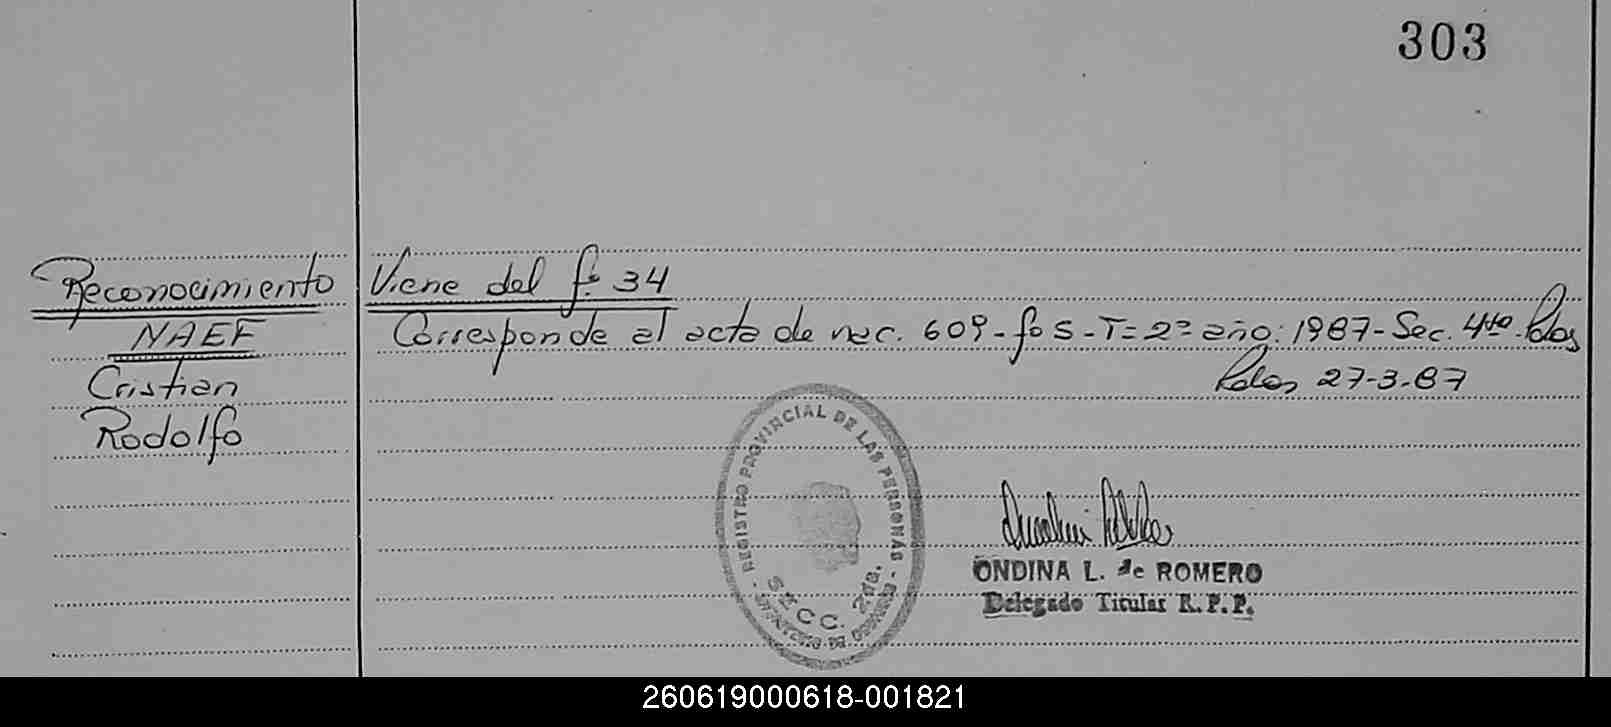 303
Reconocimiento
NAEF
Cristian
Rodolfo
Viene del fº 34
Corresponde al acta de nac. 609-fº 5-T=2º año: 1987-Sec. 4ta Pdas
Pdas 27-3-87
REGISTRO PROVINCIAL DE LAS PERSONAS
SECC. 2da.
ONDINA L. de ROMERO
Delegado Titular R.P.P.
260619000618-001821